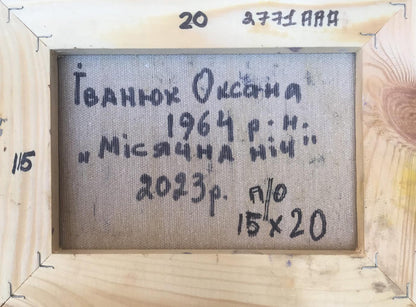 20 2771AAA
Іванюк Оксана
1964 р.н.
115
„Місячна ніч"
2023р. п/о
15×20